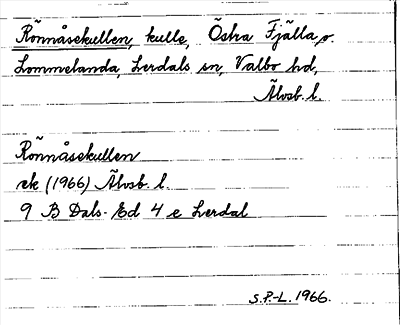 Rönnåsekullen, kulle, Östra Fjälla, o.
Lommelanda, Lerdals sn, Valbo hd,
Älvsb. l.
Rönnåsekullen
ek (1966) Älvsb. l.
9 B Dals-Ed 4 e Lerdal
S.P.-L. 1966.